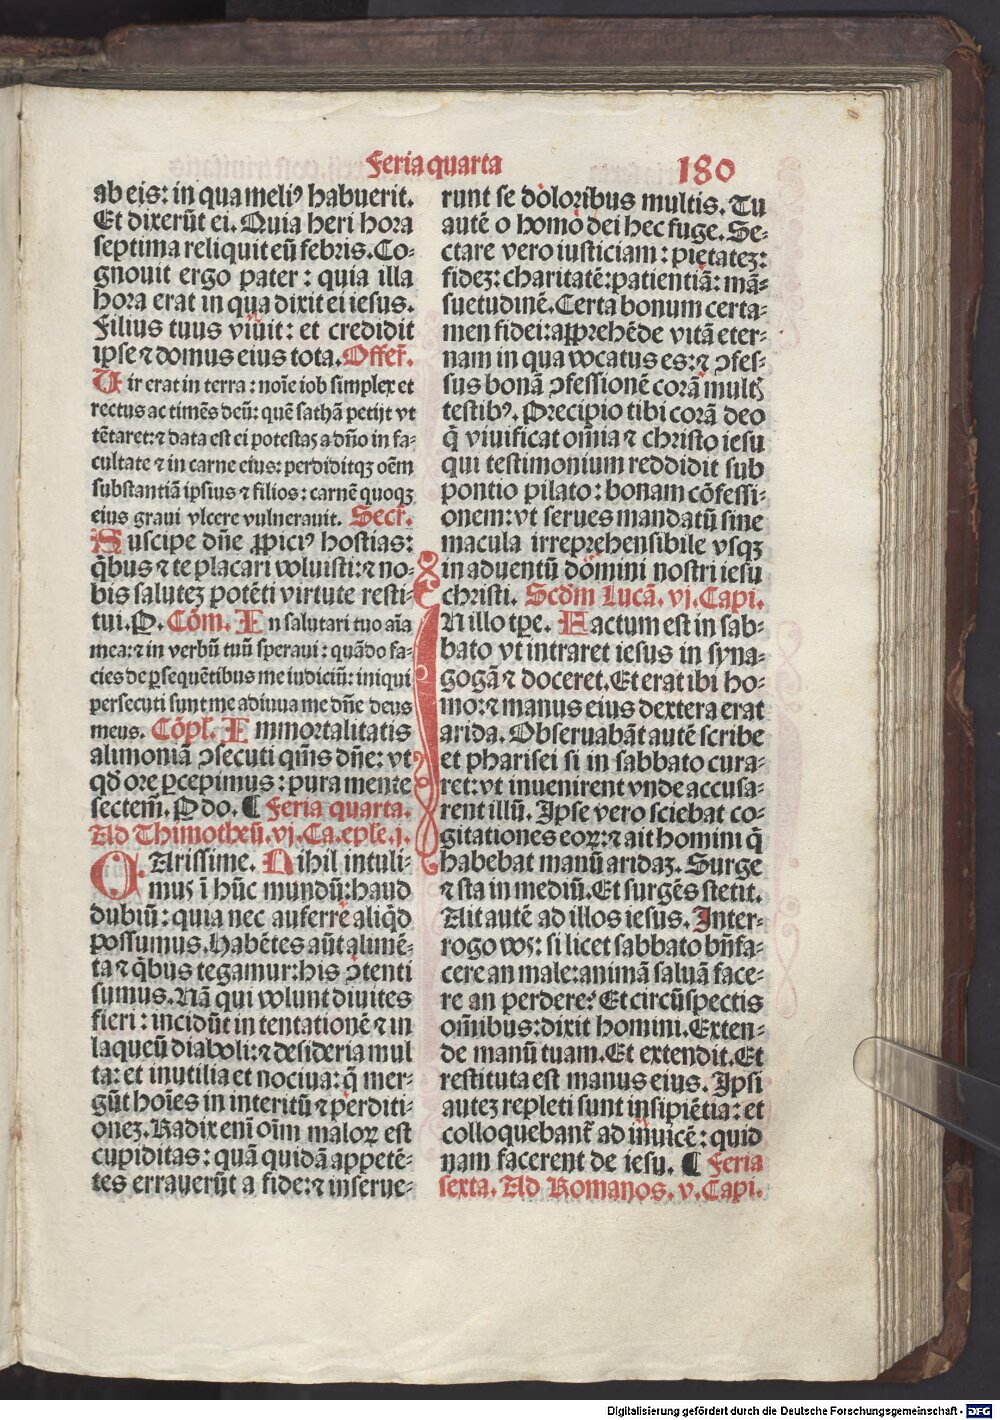 Feria quarta 180
ab eis: in qua meliꝰ habuerit.
Et dixerūt ei. Quia heri hora
septima reliquit eū febris. Co-
gnouit ergo pater: quia illa
hora erat in qua dixit ei iesus.
Filius tuus viuit: et credidit
ipse ⁊ domus eius tota. Offer̄.
Vir erat in terra: noīe iob simplex et
rectus ac timēs deū: quē sathā petijt vt
tētaret: ⁊ data est ei potestas a dn̄o in fa-
cultate ⁊ in carne eius: perdiditqꝫ oēm
substantiā ipsius ⁊ filios: carnē quoqꝫ
eius graui vlcere vulnerauit. Secr̄.
Suscipe dn̄e ꝓpiciꝰ hostias:
q̄bus ⁊ te placari voluisti: ⁊ no-
bis saluteꝫ potēti virtute resti-
tui. P. Cōm. In salutari tuo aīa
mea: ⁊ in verbū tuū speraui: quādo fa-
cies de ꝑsequētibus me iudiciū: iniqui
persecuti sunt me adiuua me dn̄e deus
meus. Cōpl̄. Immortalitatis
alimoniā ↄsecuti qm̄s dn̄e: vt
qd̄ ore ꝑcepimus: pura mente
sectem̄. P do. ¶ Feria quarta.
Ad Thimotheū. vj. Ca. eple. j.
CArissime. Nihil intuli-
mus ī hūc mundū: haud
dubiū: quia nec auferre aliq̄d
possumus. Habētes aūt alimē-
ta ⁊ q̄bus tegamur: his ↄtenti
sumus. Nā qui volunt diuites
fieri: incidūt in tentationē ⁊ in
laqueū diaboli: ⁊ desideria mul
ta: et inutilia et nociua: q̄ mer-
gūt hoīes in interitū ⁊ perditi-
oneꝫ. Radix eni oīm maloꝝ est
cupiditas: quā quidā appetē-
tes errauerūt a fide: ⁊ inserue-
runt se doloribus multis. Tu
autē o homo dei hec fuge. Se-
ctare vero iusticiam: pietateꝫ:
fideꝫ: charitatē: patientiā: mā-
suetudinē. Certa bonum certa-
men fidei: apprehēde vitā eter-
nam in qua vocatus es: ⁊ ↄfes-
sus bonā ↄfessionē corā multꝭ
testibꝰ. Precipio tibi corā deo
q̄ viuificat om̄ia ⁊ christo iesu
qui testimonium reddidit sub
pontio pilato: bonam cōfessi-
onem: vt serues mandatū sine
macula irreprehensibile vsqꝫ
in aduentū domini nostri iesu
christi. Scdm̄ Lucā. vj. Capi.
IN illo tp̄e. Factum est in sab-
bato vt intraret iesus in syna-
gogā ⁊ doceret. Et erat ibi ho-
mo: ⁊ manus eius dextera erat
arida. Obseruabāt autē scribe
et pharisei si in sabbato cura-
ret: vt inuenirent vnde accusa-
rent illū. Ipse vero sciebat co-
gitationes eoꝝ: ⁊ ait homini q̄
habebat manū aridaꝫ. Surge
⁊ sta in mediū. Et surgēs stetit.
Ait autē ad illos iesus. Inter-
rogo vos: si licet sabbato bn̄fa-
cere an male: animā saluā face-
re an perdere? Et circūspectis
om̄ibus: dixit homini. Exten-
de manū tuam. Et extendit. Et
restituta est manus eius. Ipsi
auteꝫ repleti sunt insipiētia: et
colloquebant̄ ad inuicē: quid
nam facerent de iesu. ¶ Feria
sexta. Ad Romanos. v. Capi.
Digitalisierung gefördert durch die Deutsche Forschungsgemeinschaft - DFG